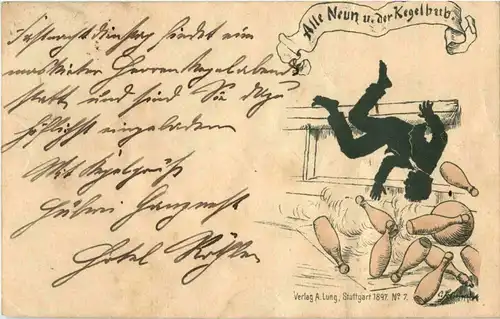 Alle Neun u. der Kegelbub.
Fastnacht Dienstag findet ein
maskierter Herren Kegelabend
statt und sind Sie dazu
höflichst eingeladen
Mit Kegelgruß
Hotel
Verlag A. Lung, Stuttgart 1897. No 7.